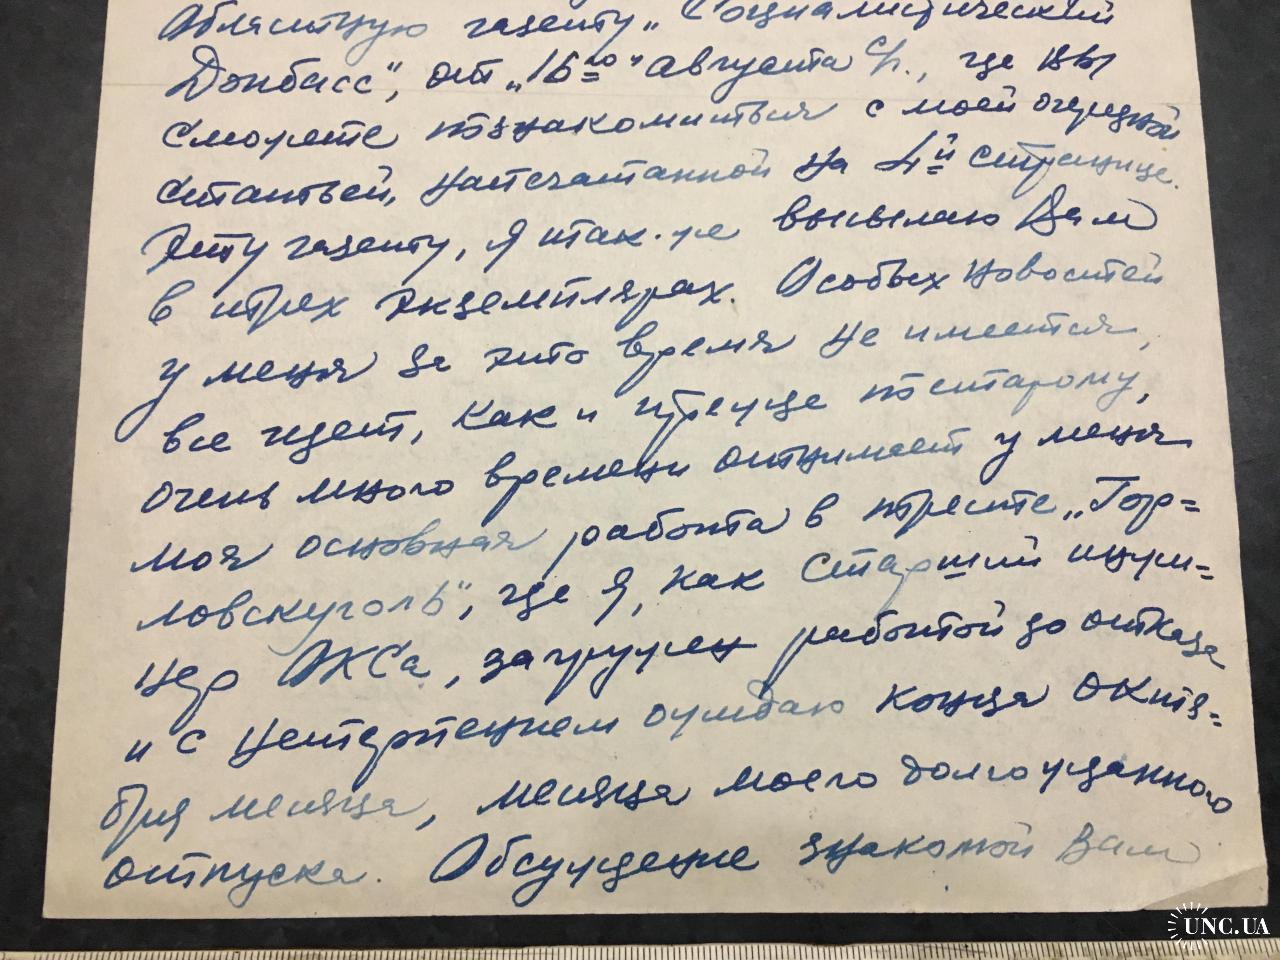 областную газету „Социалистический
Донбасс“, от „16го“ августа с/г., где Вы
сможете познакомиться с моей очередной
статьей, напечатанной на 4й странице.
Эту газету, я так-же высылаю Вам
в трех экземплярах. Особых новостей
у меня за это время не имеется,
все идет, как и прежде по старому,
очень много времени отнимает у меня
моя основная работа в тресте „Гор=
ловскуголь“, где я, как старший инже=
нер ОКСа, загружен работой до отказа
и с нетерпением ожидаю конца октя=
бря месяца, месяца моего долгожданного
отпуска. Обсуждение знакомой Вам
UNC.UA